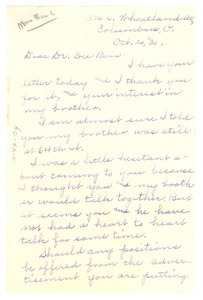 Columbus, O.
Oct. 20, '30.
Dear Dr. Du Bois:
I have your
letter today and I thank you
for it, and your interest in
my brother.
I am almost sure I told
you my brother was still
at 64th st.
I was a little hesitant a-
bout coming to you because
I thought you and my broth-
er would talk together. But
it seems you and he have
not had a heart to heart
talk for some time.
Should any positions
be offered from the adver-
tisement you are putting